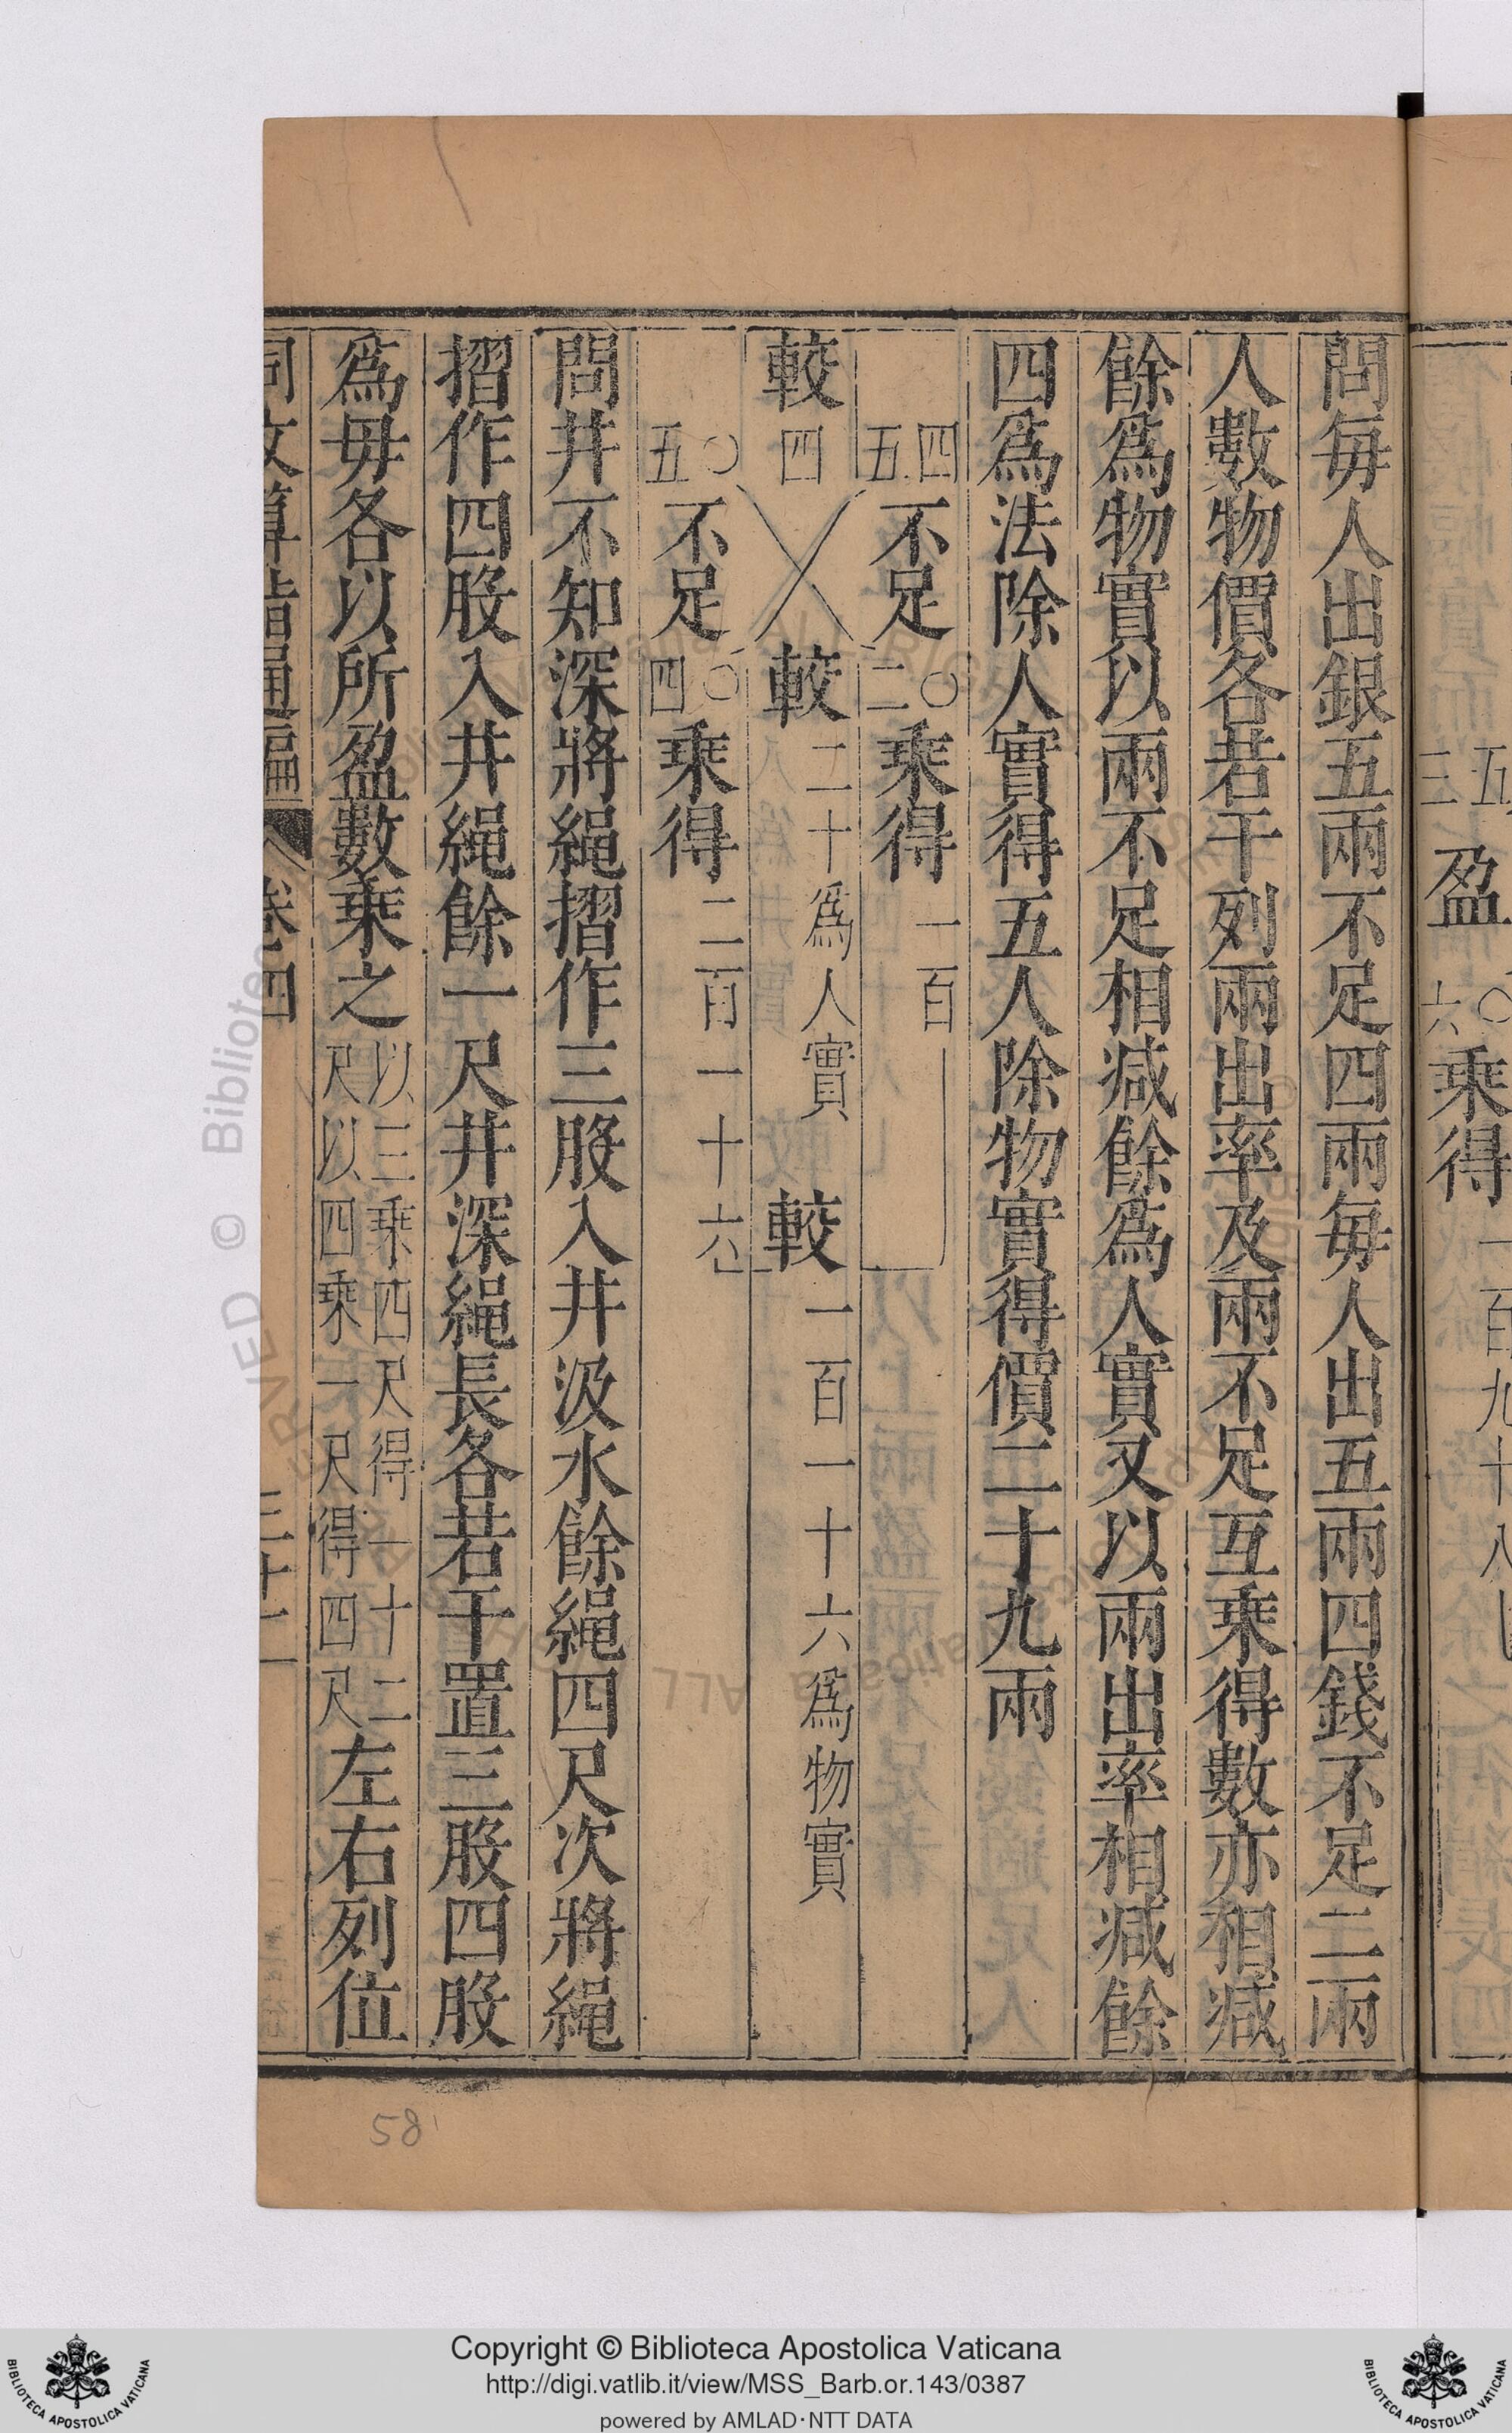 五 盈 〇 乘得 一百九十八
三 六
問每人出銀五兩不足四兩每人出五兩四錢不足二兩
人數物價各若干列兩出率及兩不足互乘得數亦相减
餘爲物實以兩不足相减餘爲人實又以兩出率相减餘
四爲法除人實得五人除物實得價二十九兩
四 不足 〇 乘得 一百
五 二
較 四 較 二十爲人實 較 一百一十六爲物實
〇 不足 〇 乘得 二百一十六
五 四
問井不知深將繩摺作三股入井汲水餘繩四尺次將繩
摺作四股入井繩餘一尺井深繩長各若干置三股四股
爲毋各以所盈數乘之以三乘四尺得一十二
尺以四乘一尺得四尺左右列位
同文算指通編 卷四 三十二
58
© Biblioteca Apostolica Vaticana
ALL RIGHTS RESERVED
Copyright © Biblioteca Apostolica Vaticana
http://digi.vatlib.it/view/MSS_Barb.or.143/0387
powered by AMLAD·NTT DATA
BIBLIOTECA APOSTOLICA VATICANA
BIBLIOTECA APOSTOLICA VATICANA